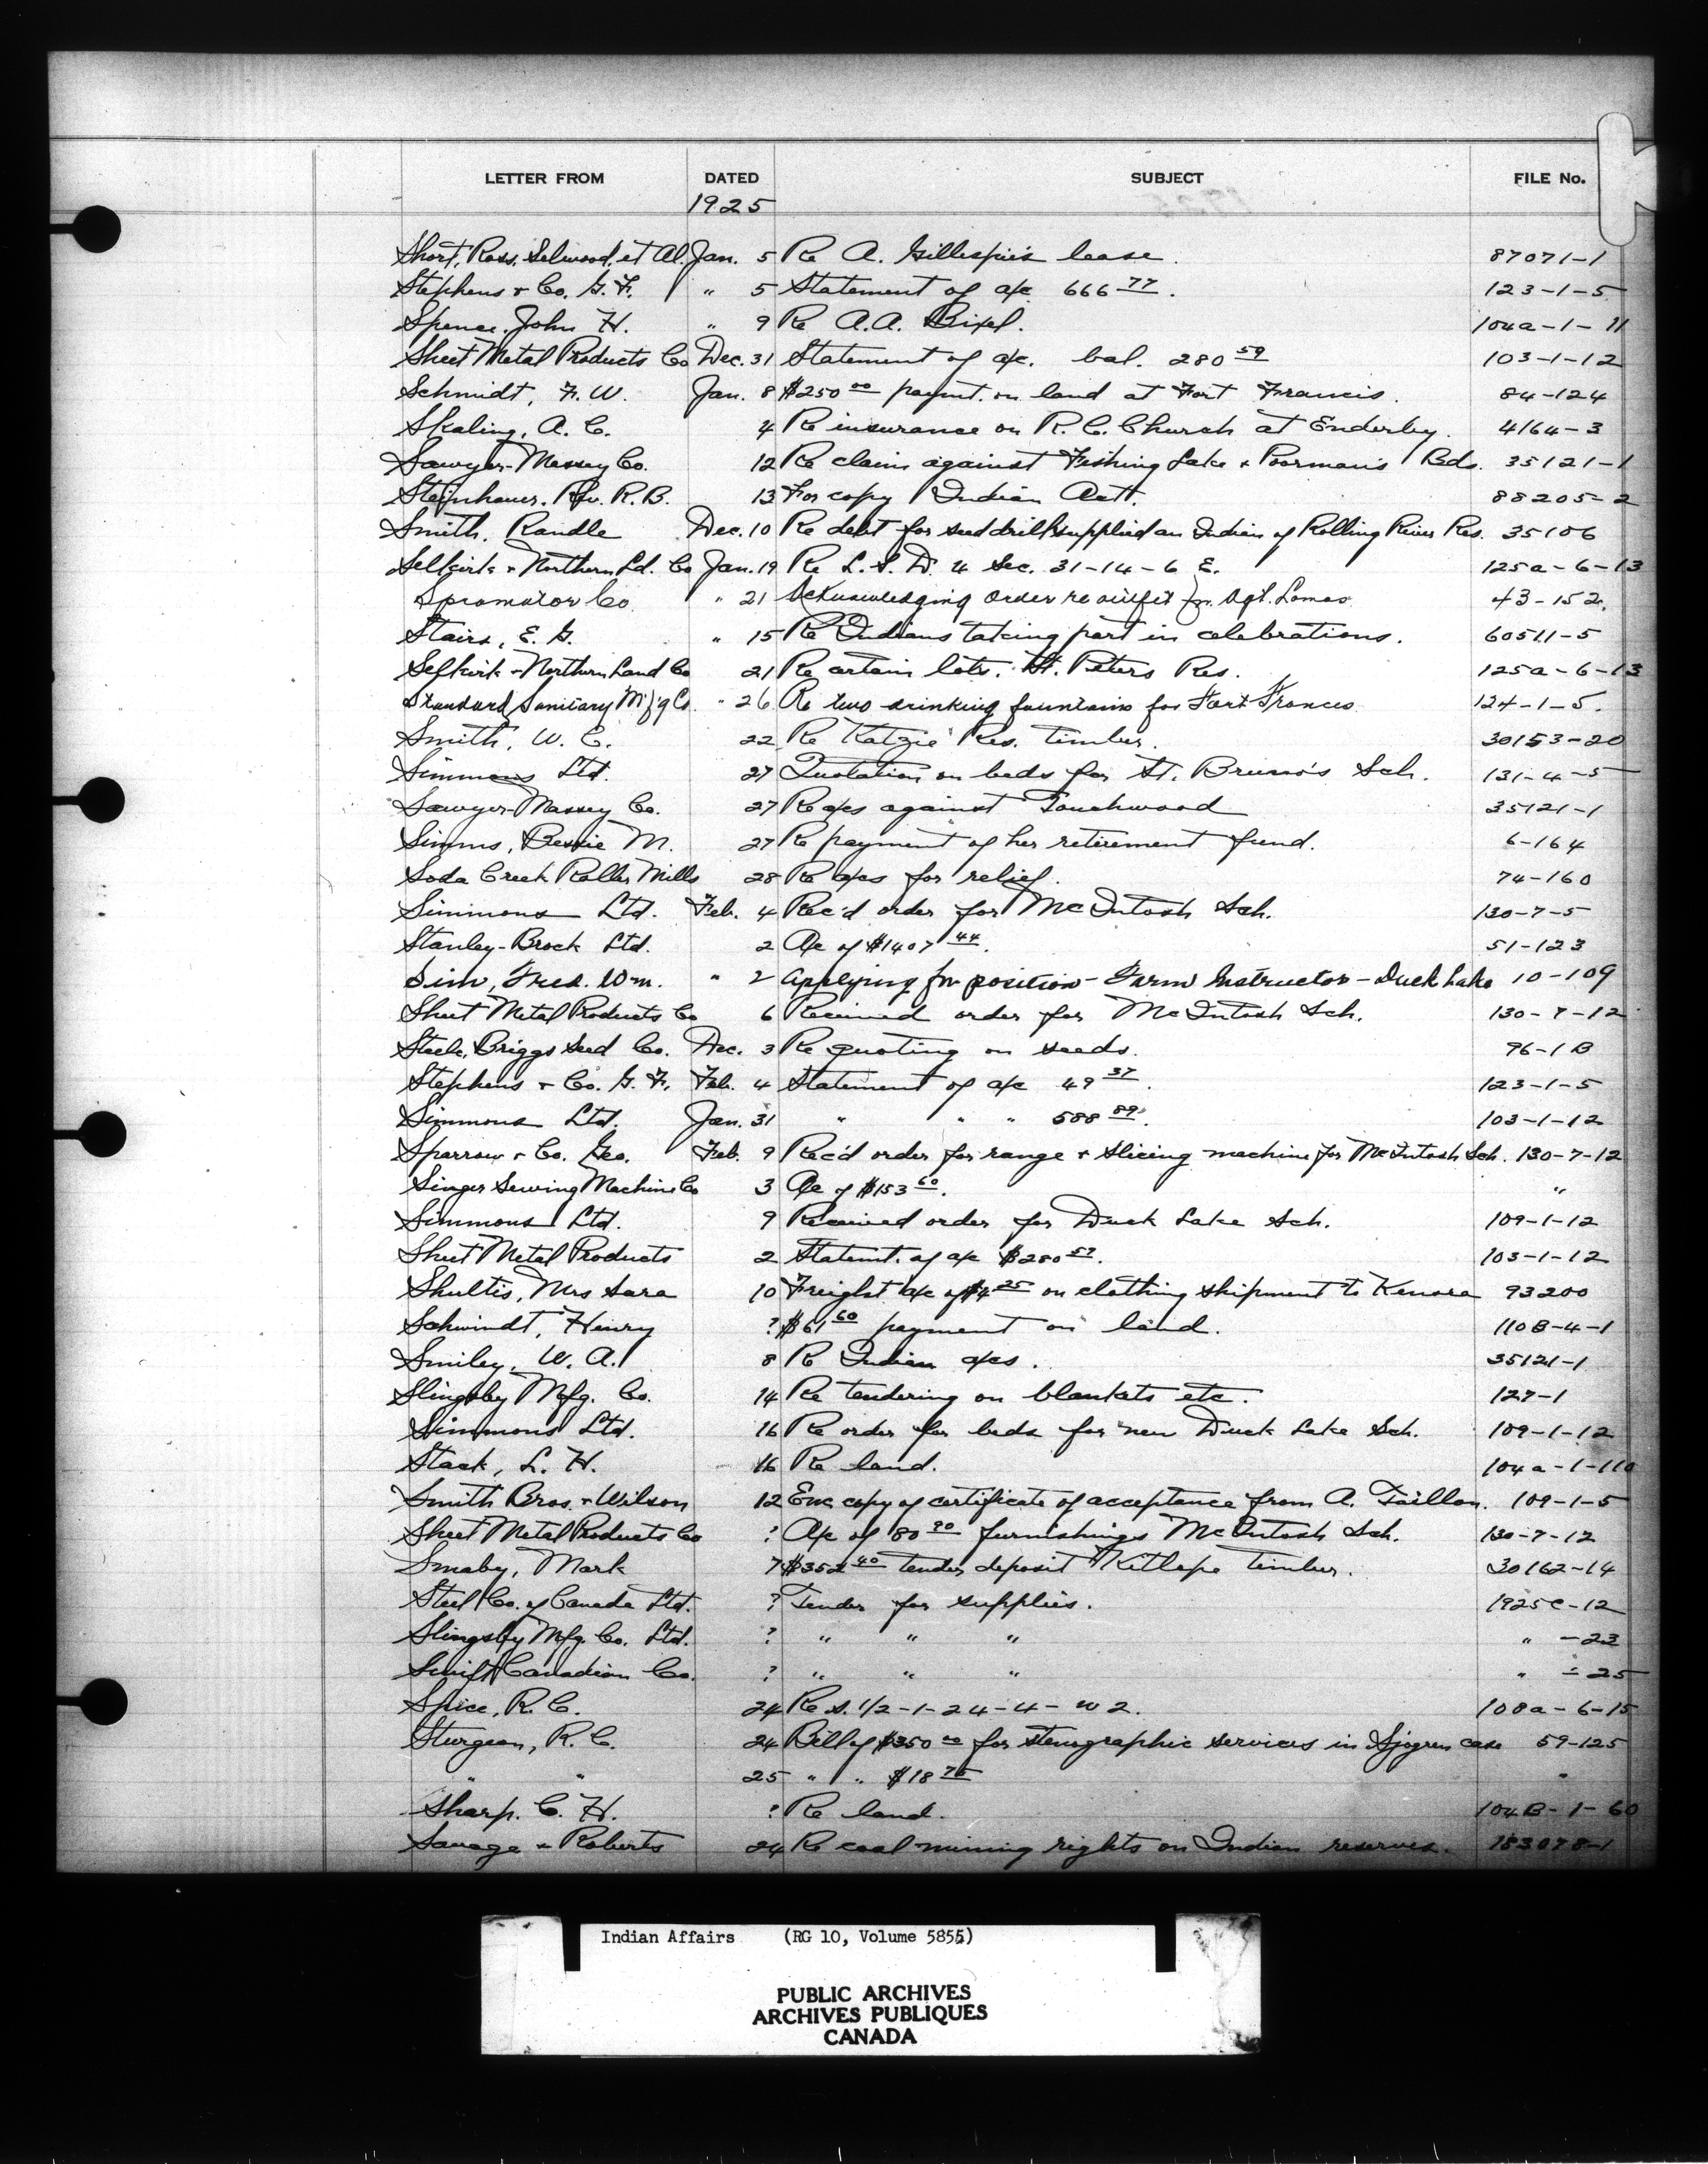 LETTER FROM DATED SUBJECT FILE No.
1925
Short, Ross, Selwood, et Al. Jan. 5 Re A. Gillespie's lease. 87071-1
Stephens + Co. G. F. " 5 Statement of a/c 666 77. 123-1-5
Spence, John H. " 9 Re A.A. Bixel. 104a-1-11
Sheet Metal Products Co Dec. 31 Statement of a/c. bal. 280 59 103-1-12
Schmidt, F. W. Jan. 8 $250 00 paymt. on land at Fort Francis. 84-124
Skaling, A. C. 4 Re insurance on R. C. Church at Enderby. 4164-3
Sawyer-Massey Co. 12 Re claim against Fishing Lake + Poorman's Bds. 35121-1
Steinhauer, Rev. R. B. 13 For copy Indian Act. 88205-2
Smith, Randle Dec. 10 Re debt for seed drill supplied an Indian of Rolling River Res. 35106
Selkirk + Northern Ld. Co Jan. 19 Re L. S. D. 4 Sec. 31-14-6 E. 125a-6-13
Spramotor Co " 21 Acknowledging order re outfit for Agt. Lomas 43-152.
Stairs, E. G. " 15 Re Indians taking part in celebrations. 60511-5
Selkirk + Northern Land Co 21 Re certain lots. St. Peters Res. 125a-6-13
Standard Sanitary M'f'g Co. " 26 Re two drinking fountains for Fort Frances 124-1-5.
Smith, W. C. 22 Re Katzie Res. timber. 30153-20
Simmons Ltd. 27 Quotation on beds for St. Bruno's Sch. 131-4-5
Sawyer-Massey Co. 27 Re a/cs against Touchwood 35121-1
Simms, Bessie M. 27 Re payment of her retirement fund. 6-164
Soda Creek Roller Mills 28 Re a/cs for relief. 74-160
Simmons Ltd. Feb. 4 Rec'd order for McIntosh Sch. 130-7-5
Stanley-Brock Ltd. 2 A/c of $1407 44. 51-123
Sim, Fred. Wm. " 2 Applying for position - Farm Instructor - Duck Lake 10-109
Sheet Metal Products Co 6 Received order for McIntosh Sch. 130-7-12
Steele, Briggs Seed Co. Dec. 3 Re quoting on seeds. 96-1B
Stephens + Co. G. F. Feb. 4 Statement of a/c 49 37. 123-1-5
Simmons Ltd. Jan. 31 " " " 588 89. 103-1-12
Sparrow + Co. Geo. Feb. 9 Rec'd order for range + slicing machine for McIntosh Sch. 130-7-12
Singer Sewing Machine Co 3 A/c of $153 60. "
Simmons Ltd. 9 Received order for Duck Lake Sch. 109-1-12
Sheet Metal Products 2 Statemt. of a/c $280 59. 103-1-12
Shultis, Mrs Sara 10 Freight a/c of $4 25 on clothing shipment to Kenora 93200
Schwindt, Henry ? $61 60 payment on land. 110B-4-1
Smiley, W. A. 8 Re Indian a/cs. 35121-1
Slingsby Mfg. Co. 14 Re tendering on blankets etc. 127-1
Simmons Ltd. 16 Re order for beds for new Duck Lake Sch. 109-1-12
Stack, L. H. 16 Re land. 104a-1-110
Smith Bros. + Wilson 12 Enc copy of certificate of acceptance from A. Taillon. 109-1-5
Sheet Metal Products Co ? A/c of 80 90 furnishings McIntosh Sch. 130-7-12
Smaby, Mark 7 $352 40 tender deposit Kitlope timber. 30162-14
Steel Co. of Canada Ltd. ? Tender for supplies. 1925C-12
Slingsby Mfg. Co. Ltd. ? " " " " -23
Swift Canadian Co. ? " " " " -25
Spice, R. C. 24 Re S. 1/2-1-24-4-W2. 108a-6-15
Sturgeon, R. C. 24 Bill of $350 00 for stenographic services in Sjogren case 59-125
" " 25 " " $18 75 "
Sharp. C. H. ? Re land. 104B-1-60
Savage + Roberts 24 Re coal mining rights on Indian reserves. 183078-1
Indian Affairs (RG 10, Volume 5855)
PUBLIC ARCHIVES
ARCHIVES PUBLIQUES
CANADA